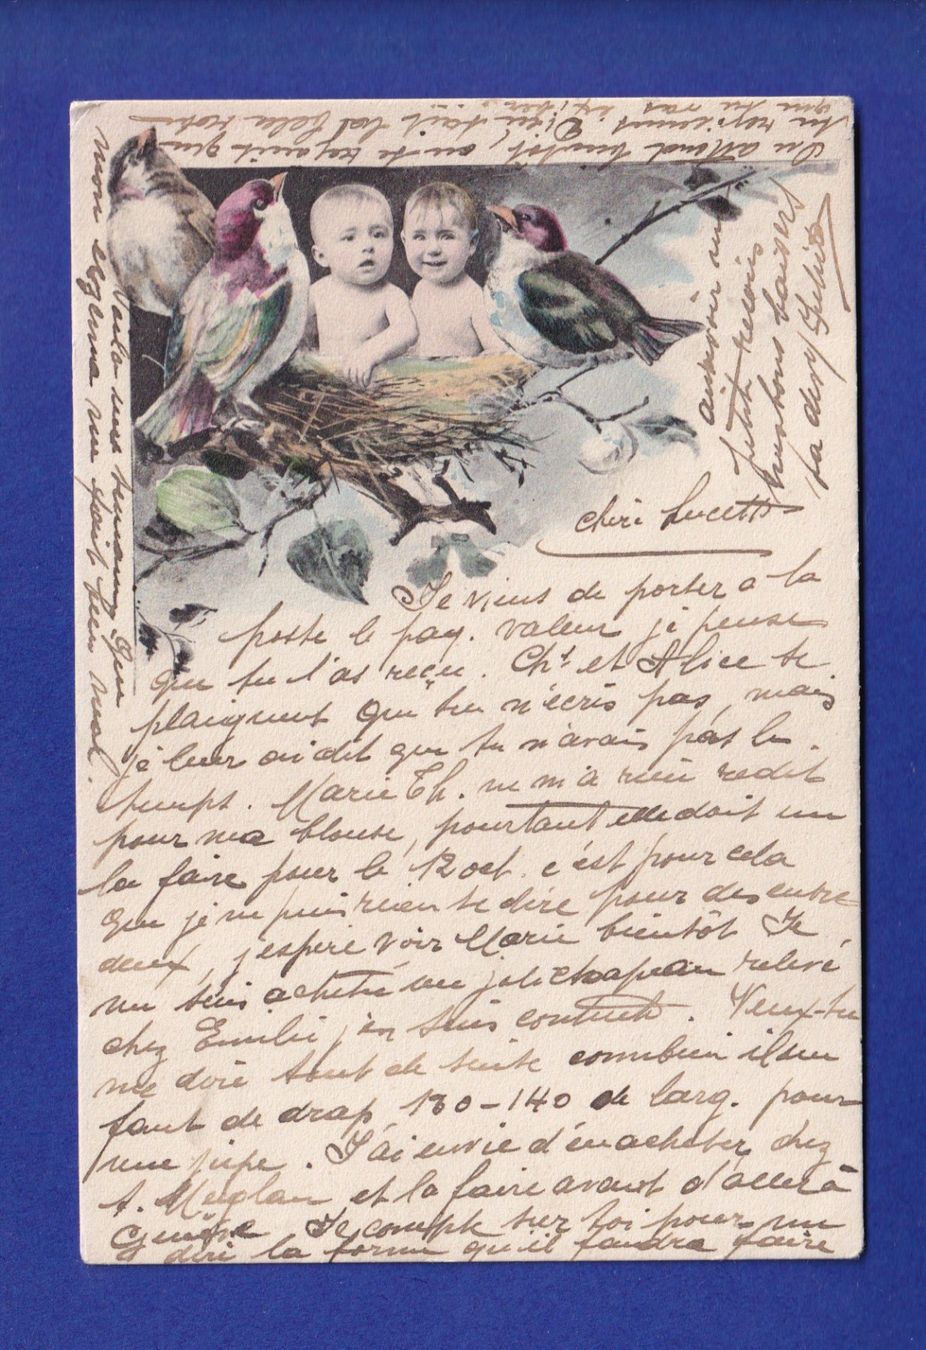 chéri Lucette
Je viens de porter à la
poste le paq. valeur je pense
que tu l'as reçu. Chs et Alice se
plaignent que tu n'écris pas, mais
je leur ai dit que tu n'avais pas le
temps. Marie Th. ne m'a rien redit
pour ma blouse, pourtant elle doit
la faire pour le 12 oct. c'est pour cela
que je ne puis rien te dire pour des entre-
deux, j'espère voir Marie bientôt Je
me suis acheté un joli chapeau relevé
chez Emilie j'en suis contente. Veux-tu
me dire tout de suite combien il me
faut de drap 130-140 de larg. pour
une jupe. J'ai envie d'en acheter chez
A. et la faire avant d'aller à
Genève Je compte sur toi pour me
dire la forme qu'il faudra faire
mon me fait bien mal.
Voilà une semaine que
On attend bientôt, on se réjouit que
tu reviennes Dieu sait
que tu vas
au revoir ma
petite reçois
bons baisers
ta dev.